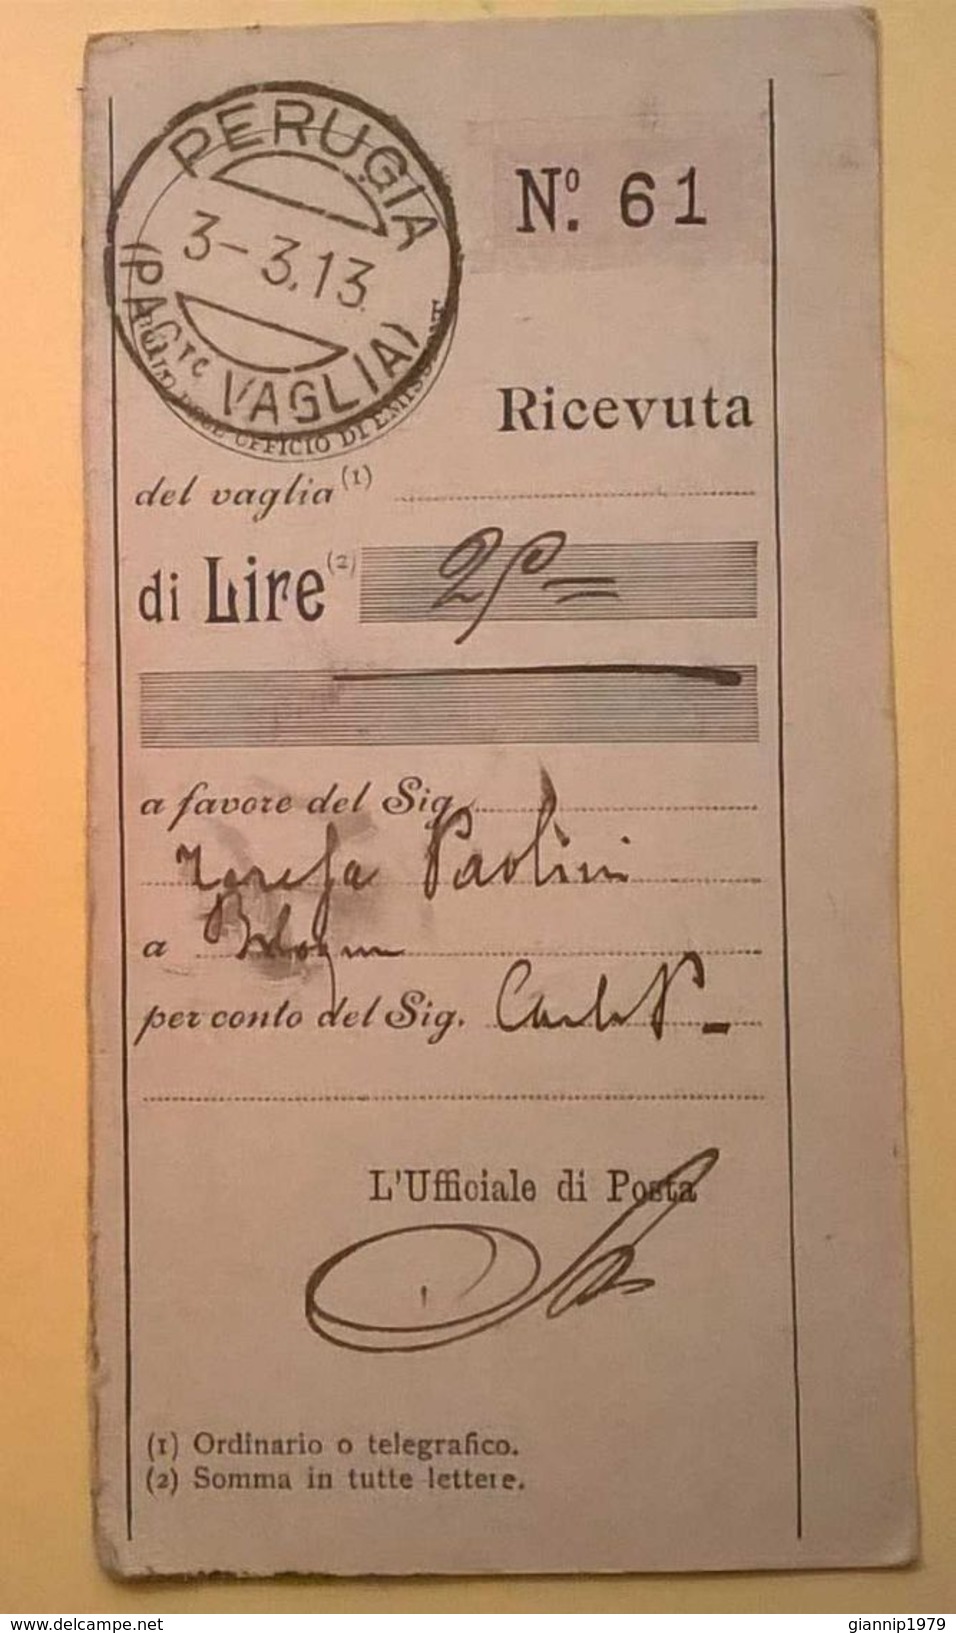 PERUGIA
3-3.13.
(PAG.TO VAGLIA)
UFFICIO DI EMISSIONE
No. 61
Ricevuta
del vaglia (1)
di Lire (2)
a favore del Sig.
Teresa Paolini
a Bologna
per conto del Sig. Carlo P
L'Ufficiale di Posta
(1) Ordinario o telegrafico.
(2) Somma in tutte lettere.
www.delcampe.net
giannip1979